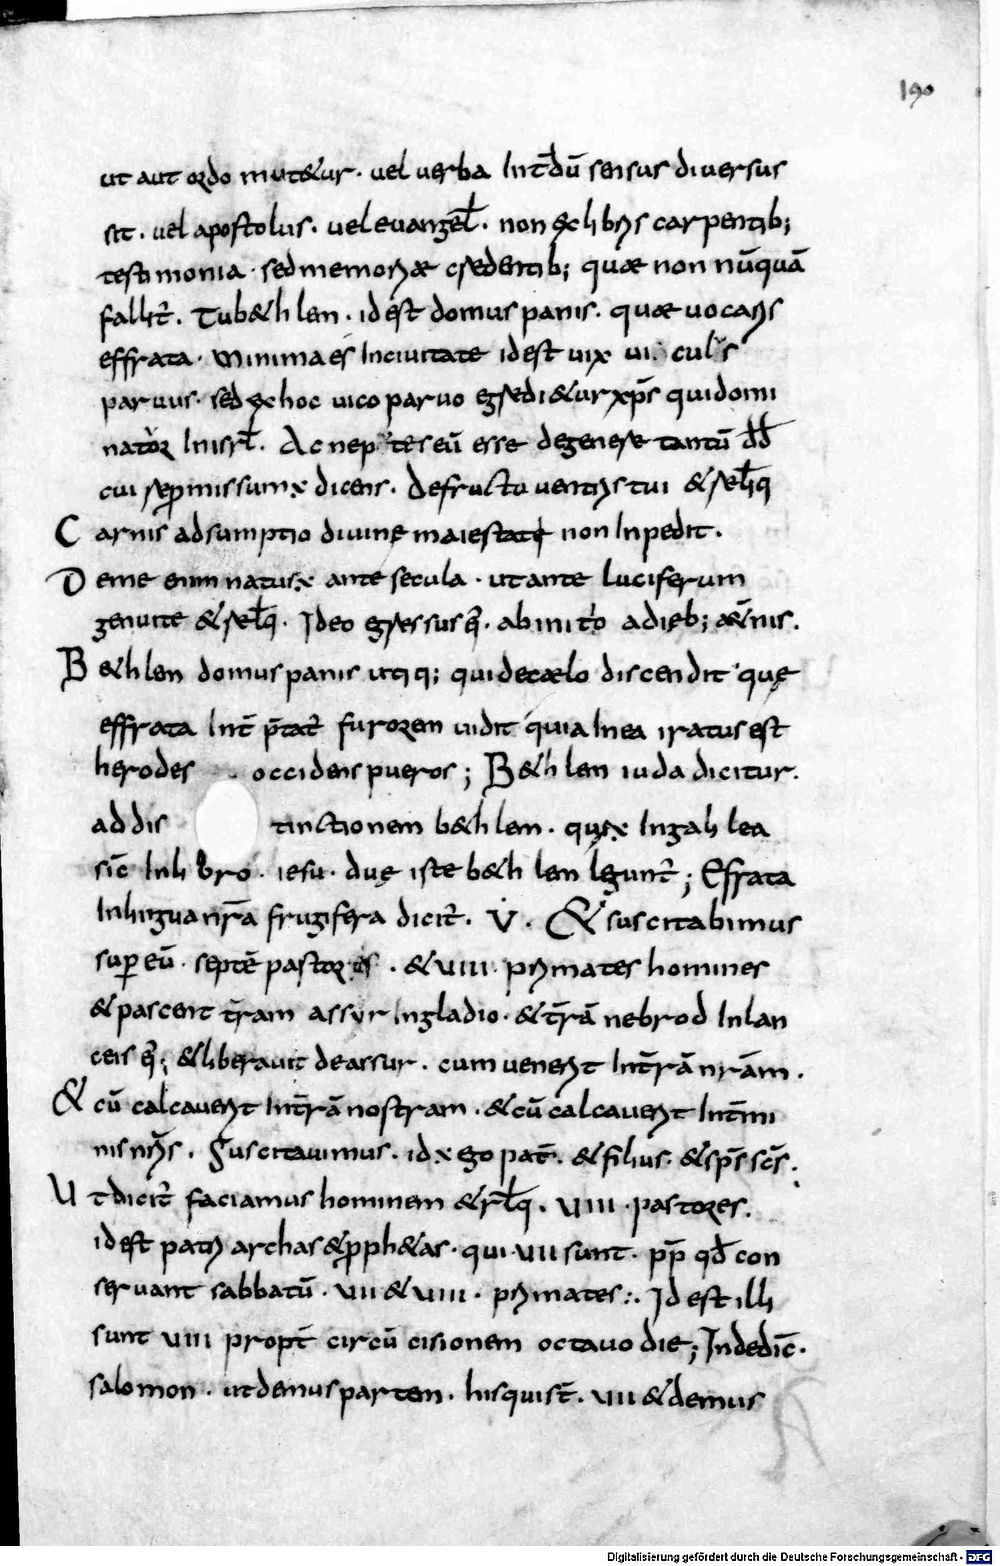 190
ut aut ordo mut&ur · uel uerba Int̄dū sensus diuersus
sit · uel apostolus · uel euangel̄ · non ex libris carpentib;
testimonia · sed memoriæ credentib; quæ non nūquā
fallit̄ . Tu b&hlen · id est domus panis · quæ uocaris
effrata · minima es Inciuitate id est uix
paruus · sed ex hoc uico paruo egredi&ur xp̄s qui domi
nator Inisrl̄ . Ac ne eū esse de genere tantū dd̄
cui dicens . De fructu uentris tui & rel̄iq
Carnis adsumptio diuine maiestate non Inpedit .
De me enim natus ante secula · ut ante luciferum
genui te & rel̄q . Ideo egressus ē · ab initio adieb; æt̄nis .
B&hlen domus panis utiq; qui de cælo discendit · que
effrata Int̄ p̄tat̄ furorem uidit quia Inea iratus est
herodes occidens pueros ; B&hlen iuda dicitur .
ad dis tinctionem b&hlem · quæ Ingalilea
sic̄ Inlibro · iesu · due iste b&hlen legunt̄ ; Efrata
Inlingua nr̄a frugifera dicit̄ . V . & suscitabimus
sup eū · septē pastores · & uiii · primates homines
& pascent t̄ram assyr Ingladio · & t̄rā nebrod Inlan
ceis ei; & liberauit de assur · cum uenerit Int̄rā nr̄am .
& cū calcauerit Int̄rā nostram · & cū calcauerit Int̄mi
nis nr̄is . Suscitauimus · id ego pat̄ · & filius · & sp̄s sc̄s .
Ut dicit̄ faciamus hominem & rl̄q . uiii · pastores .
id est patriarchas & pph&as · qui uii sunt · pp̄ qd̄ con
seruant sabbatū · uii & uiii · primates :· Id est illi
sunt uiii propt̄ circū cisionem octauo die ; Inde dic̄ ·
salomon · ut demus partem · his qui st̄ · uii & demus
Digitalisierung gefördert durch die Deutsche Forschungsgemeinschaft - DFG